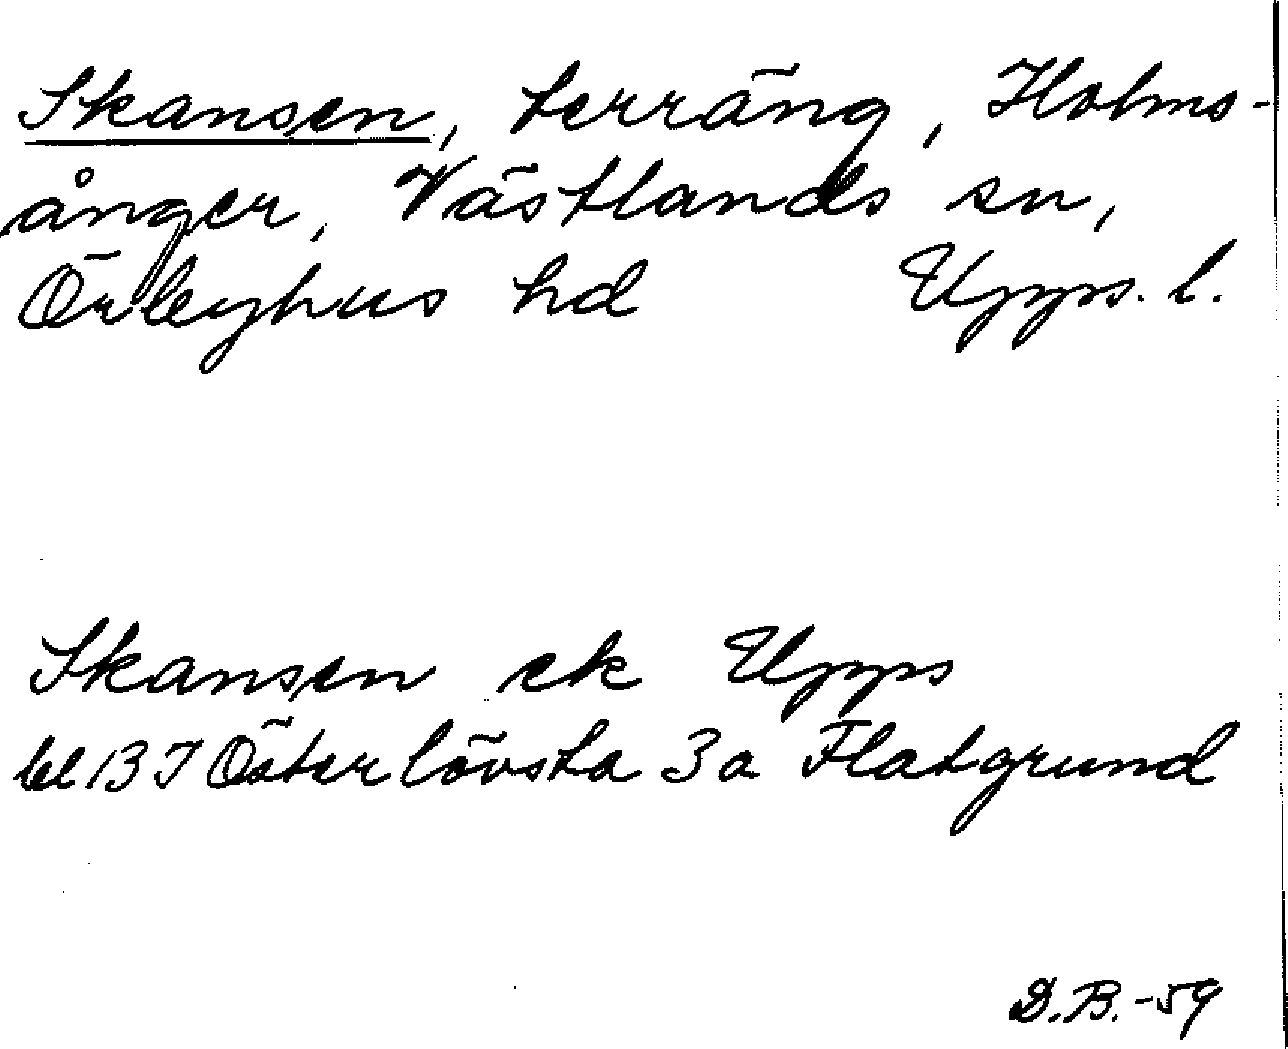 Skansen, terräng, Holms-
ånger, Västlands sn,
Örbyhus hd Upps. l.
Skansen ek Upps
bl 13 I Österlövsta 3a Flatgrund
D.B. -59